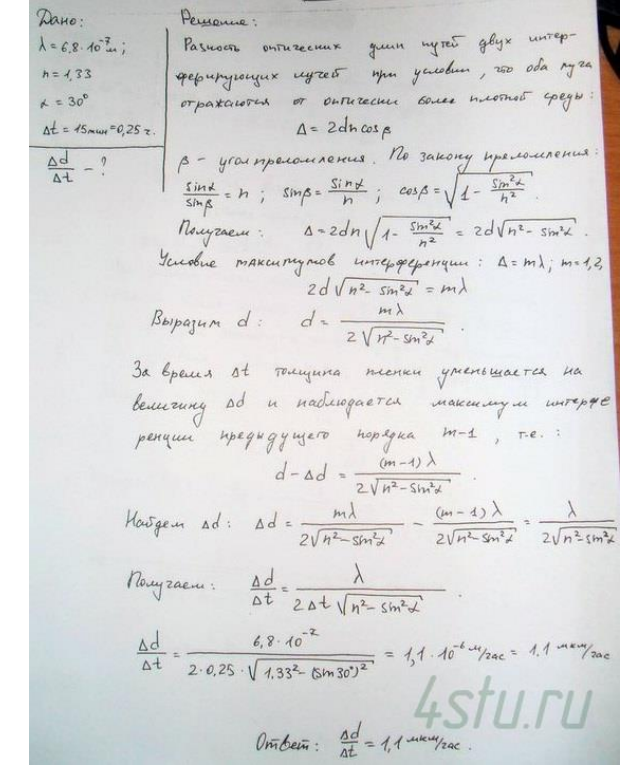 Дано:
λ = 6,8·10⁻⁷ м;
n = 1,33
α = 30°
Δt = 15мин = 0,25 г.
Δd/Δt - ?
Решение:
Разность оптических длин путей двух интер-
ферирующих лучей при условии, что оба луча
отражаются от оптически более плотной среды:
Δ = 2dn cosβ
β - угол преломления. По закону преломления:
sinα/sinβ = n ; sinβ = sinα/n ; cosβ = √(1 - sin²α/n²).
Получаем: Δ = 2dn√(1 - sin²α/n²) = 2d√(n² - sin²α).
Условие максимумов интерференции: Δ = mλ; m = 1,2,
2d√(n² - sin²α) = mλ
Выразим d: d = mλ/(2√(n² - sin²α)).
За время Δt толщина пленки уменьшается на
величину Δd и наблюдается максимум интерфе
ренции предыдущего порядка m-1, т.е.:
d - Δd = (m-1)λ/(2√(n² - sin²α)).
Найдем Δd: Δd = mλ/(2√(n² - sin²α)) - (m-1)λ/(2√(n² - sin²α)) = λ/(2√(n² - sin²α))
Получаем: Δd/Δt = λ/(2Δt√(n² - sin²α)).
Δd/Δt = 6,8·10⁻⁷/(2·0,25·√(1,33² - (sin30°)²)) = 1,1·10⁻⁶ м/час = 1,1 мкм/час
4stu.ru
Ответ: Δd/Δt = 1,1 мкм/час.